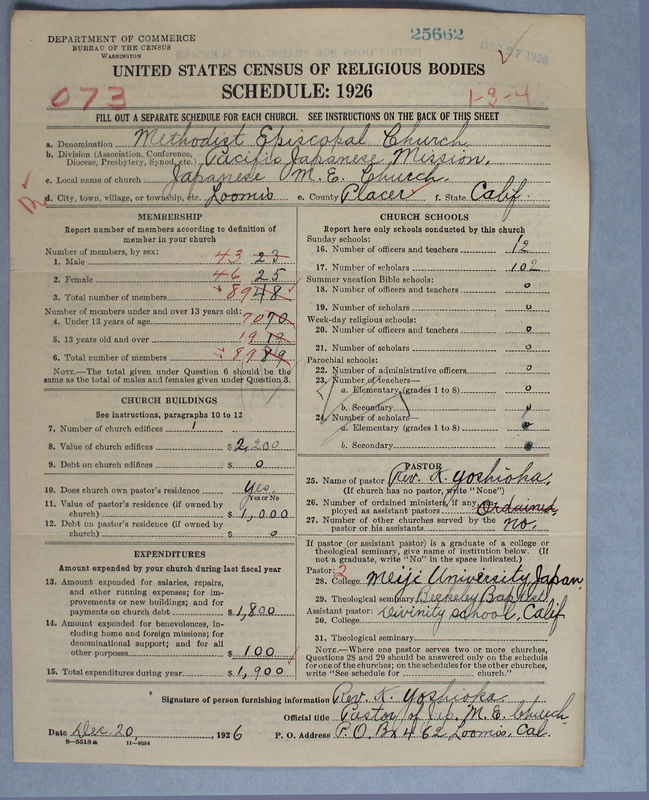 DEPARTMENT OF COMMERCE
BUREAU OF THE CENSUS
WASHINGTON
25662
DEC 27 1926
UNITED STATES CENSUS OF RELIGIOUS BODIES
SCHEDULE: 1926
073
1-3-4
FILL OUT A SEPARATE SCHEDULE FOR EACH CHURCH. SEE INSTRUCTIONS ON THE BACK OF THIS SHEET
a. Denomination Methodist Episcopal Church,
b. Division (Association, Conference, Diocese, Presbytery, Synod, etc.) Pacific Japanese Mission.
c. Local name of church Japanese M. E. Church.
d. City, town, village, or township, etc. Loomis e. County Placer f. State Calif.
MEMBERSHIP
Report number of members according to definition of
member in your church
Number of members, by sex:
1. Male 43 23
2. Female 46 25
3. Total number of members 89 48
Number of members under and over 13 years old:
4. Under 13 years of age 70 70
5. 13 years old and over 19 19
6. Total number of members 89 89
NOTE.—The total given under Question 6 should be the
same as the total of males and females given under Question 3.
CHURCH BUILDINGS
See instructions, paragraphs 10 to 12
7. Number of church edifices 1
8. Value of church edifices $2,200
9. Debt on church edifices $ 0
10. Does church own pastor's residence Yes.
Yes or No
11. Value of pastor's residence (if owned by
church) $1,000
12. Debt on pastor's residence (if owned by
church) $ 0
EXPENDITURES
Amount expended by your church during last fiscal year
13. Amount expended for salaries, repairs,
and other running expenses; for im-
provements or new buildings; and for
payments on church debt $1,800
14. Amount expended for benevolences, in-
cluding home and foreign missions; for
denominational support; and for all
other purposes $ 100
15. Total expenditures during year $1,900
CHURCH SCHOOLS
Report here only schools conducted by this church
Sunday schools:
16. Number of officers and teachers 12
17. Number of scholars 102
Summer vacation Bible schools:
18. Number of officers and teachers 0
19. Number of scholars 0
Week-day religious schools:
20. Number of officers and teachers 0
21. Number of scholars 0
Parochial schools:
22. Number of administrative officers 0
23. Number of teachers—
a. Elementary (grades 1 to 8) 0
b. Secondary 0
24. Number of scholars—
a. Elementary (grades 1 to 8) 0
b. Secondary
PASTOR
25. Name of pastor Rev. K. Yoshioka,
(If church has no pastor, write "None")
26. Number of ordained ministers, if any, em-
ployed as assistant pastors Ordained,
27. Number of other churches served by the
pastor or his assistants no.
If pastor (or assistant pastor) is a graduate of a college or
theological seminary, give name of institution below. (If
not a graduate, write "No" in the space indicated.)
Pastor: 2
28. College Meiji University, Japan.
29. Theological seminary Berkeley Baptist,
Assistant pastor: Divinity school, Calif
30. College
31. Theological seminary
NOTE.—Where one pastor serves two or more churches,
Questions 28 and 29 should be answered only on the schedule
for one of the churches; on the schedules for the other churches,
write "See schedule for church."
Signature of person furnishing information Rev. K. Yoshioka
Official title Pastor of Jap. M. E. Church.
Date Dec. 20, 1926 P. O. Address P. O. Bx 462 Loomis, Cal.
8—5518a 11—9034